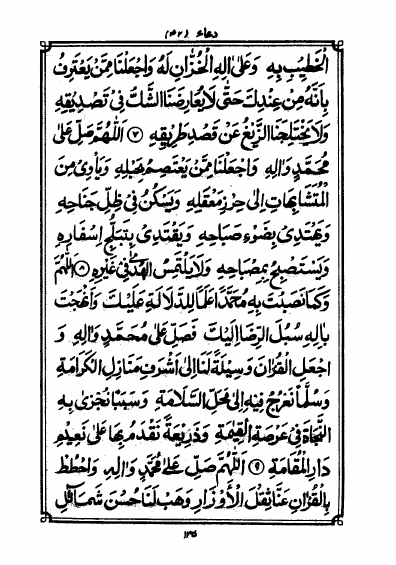 دعاء (۴۲)
الْخَطِيْبِ بِهٖ وَعَلٰى اٰلِهِ الْخُزَّانِ لَهٗ وَاجْعَلْنَا مِمَّنْ يَعْتَرِفُ
بِاَنَّهٗ مِنْ عِنْدِكَ حَتّٰى لَا يُعَارِضَنَا الشَّكُّ فِيْ تَصْدِيْقِهٖ
وَلَا يَخْتَلِجَنَا الزَّيْغُ عَنْ قَصْدِ طَرِيْقِهٖ ﴿۷﴾ اَللّٰهُمَّ صَلِّ عَلٰى
مُحَمَّدٍ وَاٰلِهٖ وَاجْعَلْنَا مِمَّنْ يَعْتَصِمُ بِحَبْلِهٖ وَيَاْوِيْ مِنَ
الْمُتَشَابِهَاتِ اِلٰى حِرْزِ مَعْقِلِهٖ وَيَسْكُنُ فِيْ ظِلِّ جَنَاحِهٖ
وَيَهْتَدِيْ بِضَوْءِ صَبَاحِهٖ وَيَقْتَدِيْ بِتَبَلُّجِ اِسْفَارِهٖ
وَيَسْتَصْبِحُ بِمِصْبَاحِهٖ وَلَا يَلْتَمِسُ الْهُدٰى فِيْ غَيْرِهٖ ﴿۸﴾ اَللّٰهُمَّ
وَكَمَا نَصَبْتَ بِهٖ مُحَمَّدًا عَلَمًا لِلدَّلَالَةِ عَلَيْكَ وَاَنْهَجْتَ
بِاٰلِهٖ سُبُلَ الرِّضَا اِلَيْكَ فَصَلِّ عَلٰى مُحَمَّدٍ وَاٰلِهٖ وَ
اجْعَلِ الْقُرْاٰنَ وَسِيْلَةً لَنَا اِلٰى اَشْرَفِ مَنَازِلِ الْكَرَامَةِ
وَسُلَّمًا نَعْرُجُ فِيْهِ اِلٰى مَحَلِّ السَّلَامَةِ وَسَبَبًا نُجْزٰى بِهِ
النَّجَاةَ فِيْ عَرْصَةِ الْقِيٰمَةِ وَذَرِيْعَةً نَقْدَمُ بِهَا عَلٰى نَعِيْمِ
دَارِ الْمُقَامَةِ ﴿۹﴾ اَللّٰهُمَّ صَلِّ عَلٰى مُحَمَّدٍ وَاٰلِهٖ وَاحْطُطْ
بِالْقُرْاٰنِ عَنَّا ثِقْلَ الْاَوْزَارِ وَهَبْ لَنَا حُسْنَ شَمَآئِلِ